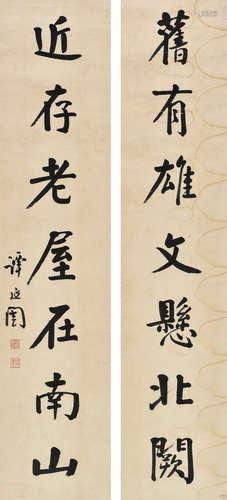 舊有雄文懸北闕
近存老屋在南山
譚延闓